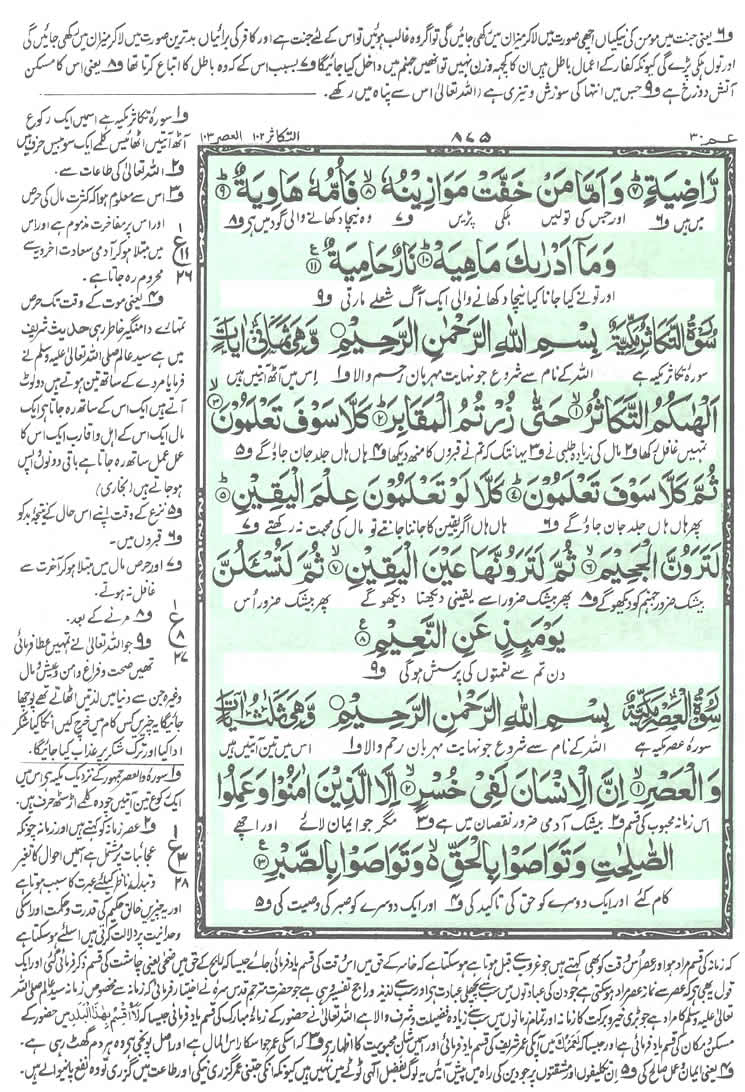 و۶ یعنی جنت میں مومن کی نیکیاں اچھی صورت میں لا کر میزان میں رکھی جائیں گی تو اگر وہ غالب ہوئیں تو اس کے لئے جنت ہے اور کافر کی برائیاں بدترین صورت میں لا کر میزان میں رکھی جائیں گی
اور تول ہلکی پڑے گی کیونکہ کفار کے اعمال باطل ہیں ان کا کچھ وزن نہیں تو انھیں جہنم میں داخل کیا جائیگا و۷ بسبب اس کے کہ وہ باطل کا اتباع کرتا تھا و۸ یعنی اس کا مسکن
آتش دوزخ ہے و۹ جس میں انتہا کی سوزش و تیزی ہے (اللہ تعالٰی اس سے پناہ میں رکھے۔
عمّ ۳۰
۸۷۵
التکاثر ۱۰۲ العصر ۱۰۳
رَّاضِيَةٍ ۷ وَاَمَّا مَنْ خَفَّتْ مَوَازِيْنُهٗ ۸ فَاُمُّهٗ هَاوِيَةٌ ۹
میں ہیں و۶ اور جس کی تولیں ہلکی پڑیں و۷ وہ نیچا دکھانے والی گود میں ہے و۸
وَمَآ اَدْرٰىكَ مَاهِيَهْ ۱۰ نَارٌ حَامِيَةٌ ۱۱
اور تو نے کیا جانا کیا نیچا دکھانے والی ایک آگ شعلے مارتی و۹
سُوْرَةُ التَّكَاثُرِ مَكِّيَّةٌ بِسْمِ اللهِ الرَّحْمٰنِ الرَّحِيْمِ وَهِيَ ثَمَانِيْ اٰيَاتٍ
سورہ تکاثر مکیہ ہے اللہ کے نام سے شروع جو نہایت مہربان رحم والا و۱ اس میں آٹھ آیتیں ہیں
اَلْهٰىكُمُ التَّكَاثُرُ ۱ حَتّٰى زُرْتُمُ الْمَقَابِرَ ۲ كَلَّا سَوْفَ تَعْلَمُوْنَ ۳
تمہیں غافل رکھا و۲ مال کی زیادہ طلبی نے و۳ یہانتک کہ تم نے قبروں کا منھ دیکھا و۴ ہاں ہاں جلد جان جاؤ گے و۵
ثُمَّ كَلَّا سَوْفَ تَعْلَمُوْنَ ۴ كَلَّا لَوْ تَعْلَمُوْنَ عِلْمَ الْيَقِيْنِ ۵
پھر ہاں ہاں جلد جان جاؤ گے و۶ ہاں ہاں اگر یقین کا جاننا جانتے تو مال کی محبت نہ رکھتے و۷
لَتَرَوُنَّ الْجَحِيْمَ ۶ ثُمَّ لَتَرَوُنَّهَا عَيْنَ الْيَقِيْنِ ۷ ثُمَّ لَتُسْـَٔلُنَّ
بیشک ضرور جہنم کو دیکھو گے و۸ پھر بیشک ضرور اسے یقینی دیکھنا دیکھو گے پھر بیشک ضرور اُس
يَوْمَىِٕذٍ عَنِ النَّعِيْمِ ۸
دن تم سے نعمتوں کی پرسش ہوگی و۹
سُوْرَةُ الْعَصْرِ مَكِّيَّةٌ بِسْمِ اللهِ الرَّحْمٰنِ الرَّحِيْمِ وَهِيَ ثَلٰثُ اٰيَاتٍ
سورہ عصر مکیہ ہے اللہ کے نام سے شروع جو نہایت مہربان رحم والا و۱ اس میں تین آیتیں ہیں
وَالْعَصْرِ ۱ اِنَّ الْاِنْسَانَ لَفِيْ خُسْرٍ ۲ اِلَّا الَّذِيْنَ اٰمَنُوْا وَعَمِلُوا
اس زمانہ محبوب کی قسم و۲ بیشک آدمی ضرور نقصان میں ہے و۳ مگر جو ایمان لائے اور اچھے
الصّٰلِحٰتِ وَتَوَاصَوْا بِالْحَقِّ ۙ وَتَوَاصَوْا بِالصَّبْرِ ۳
کام کئے اور ایک دوسرے کو حق کی تاکید کی و۴ اور ایک دوسرے کو صبر کی وصیت کی و۵
و۱ سورۂ تکاثر مکیہ ہے اس میں ایک رکوع
آٹھ آیتیں اٹھائیس کلمے ایک سو بیس حرف ہیں
و۲ اللہ تعالٰی کی طاعات سے۔
و۳ اس سے معلوم ہوا کہ کثرت مال کی حرص
اور اس پر مفاخرت مذموم ہے اور اس
میں مبتلا ہو کر آدمی سعادت اخرویہ سے
محروم رہ جاتا ہے۔
ع ۱ ۱۱ ۲۶
و۴ یعنی موت کے وقت تک حرص
تمہارے دامنگیر خاطر رہی حدیث شریف
میں ہے سید عالم صلی اللہ تعالٰی علیہ وسلم نے
فرمایا مردے کے ساتھ تین ہوتے ہیں دو لوٹ
آتے ہیں ایک اس کے ساتھ رہ جاتا ہے ایک
مال ایک اس کے اہل و اقارب ایک اس کا
عمل عمل ساتھ رہ جاتا ہے باقی دونوں واپس
ہو جاتے ہیں (بخاری)
و۵ نزع کے وقت اپنے اس حال کے نتیجۂ بد کو
و۶ قبروں میں۔
و۷ اور حرص مال میں مبتلا ہو کر آخرت سے
غافل نہ ہوتے۔
و۸ مرنے کے بعد۔
ع ۱ ۸ ۲۷
و۹ جو اللہ تعالٰی نے تمہیں عطا فرمائی
تھیں صحت و فراغ و امن و عیش و مال
وغیرہ جن سے دنیا میں لذتیں اٹھاتے تھے پوچھا
جائیگا یہ چیزیں کس کام میں خرچ کیں انکا کیا شکر
ادا کیا اور ترک شکر پر عذاب کیا جائیگا۔
و۱ سورۂ والعصر جمہور کے نزدیک مکیہ ہے اس میں
ایک رکوع تین آیتیں چودہ کلمے اڑسٹھ حرف ہیں۔
و۲ عصر زمانہ کو کہتے ہیں اور زمانہ چونکہ
عجائبات پر مشتمل ہے اس میں احوال کا تغیر
و تبدل ناظر کیلئے عبرت کا سبب ہوتا ہے
ع ۱ ۳ ۲۸
اور یہ چیزیں خالق حکیم کی قدرت و حکمت اور اس کی
وحدانیت پر دلالت کرتی ہیں اس لئے ہو سکتا ہے
کہ زمانہ کی قسم مراد ہو اور عصر اُس وقت کو بھی کہتے ہیں جو غروب سے قبل ہوتا ہے ہو سکتا ہے کہ خاسر کے حق میں اس وقت کی قسم یاد فرمائی جائے جیسا کہ رابح کے حق میں ضحٰی یعنی چاشت کی قسم ذکر فرمائی گئی اور ایک
قول یہ بھی ہے کہ عصر سے نماز عصر مراد ہو سکتی ہے جو دن کی عبادتوں میں سب سے پچھلی عبادت ہے اور سب سے لذیذ اور راجح تفسیر وہی ہے جو حضرت مترجم قدس سرہ نے اختیار فرمائی کہ زمانہ سے مخصوص زمانہ سید عالم صلی اللہ
تعالٰی علیہ وسلم کا مراد ہے جو بڑی خیر و برکت کا زمانہ اور تمام زمانوں میں سب سے زیادہ فضیلت و شرف والا ہے اللہ تعالٰی نے حضور کے زمانۂ مبارک کی قسم یاد فرمائی جیسا کہ لَآ اُقْسِمُ بِهٰذَا الْبَلَدِ میں حضور کے
مسکن و مکان کی قسم یاد فرمائی ہے اور جیسا کہ لَعَمْرُكَ میں آپ کی عمر شریف کی قسم یاد فرمائی اور اس میں شان محبوبیت کا اظہار ہے و۳ کہ اس کی عمر جو اس کا راس المال ہے اور اصل پونجی ہے وہ ہر دم گھٹ رہی ہے۔
و۴ یعنی ایمان و عمل صالح کی و۵ ان تکلیفوں اور مشقتوں پر جو دین کی راہ میں پیش آئیں یہ لوگ بفضل الٰہی ٹوٹے میں نہیں ہیں کیونکہ انکی جتنی عمر گزری نیکی اور طاعت میں گزری تو وہ نفع پانیوالے ہیں۔